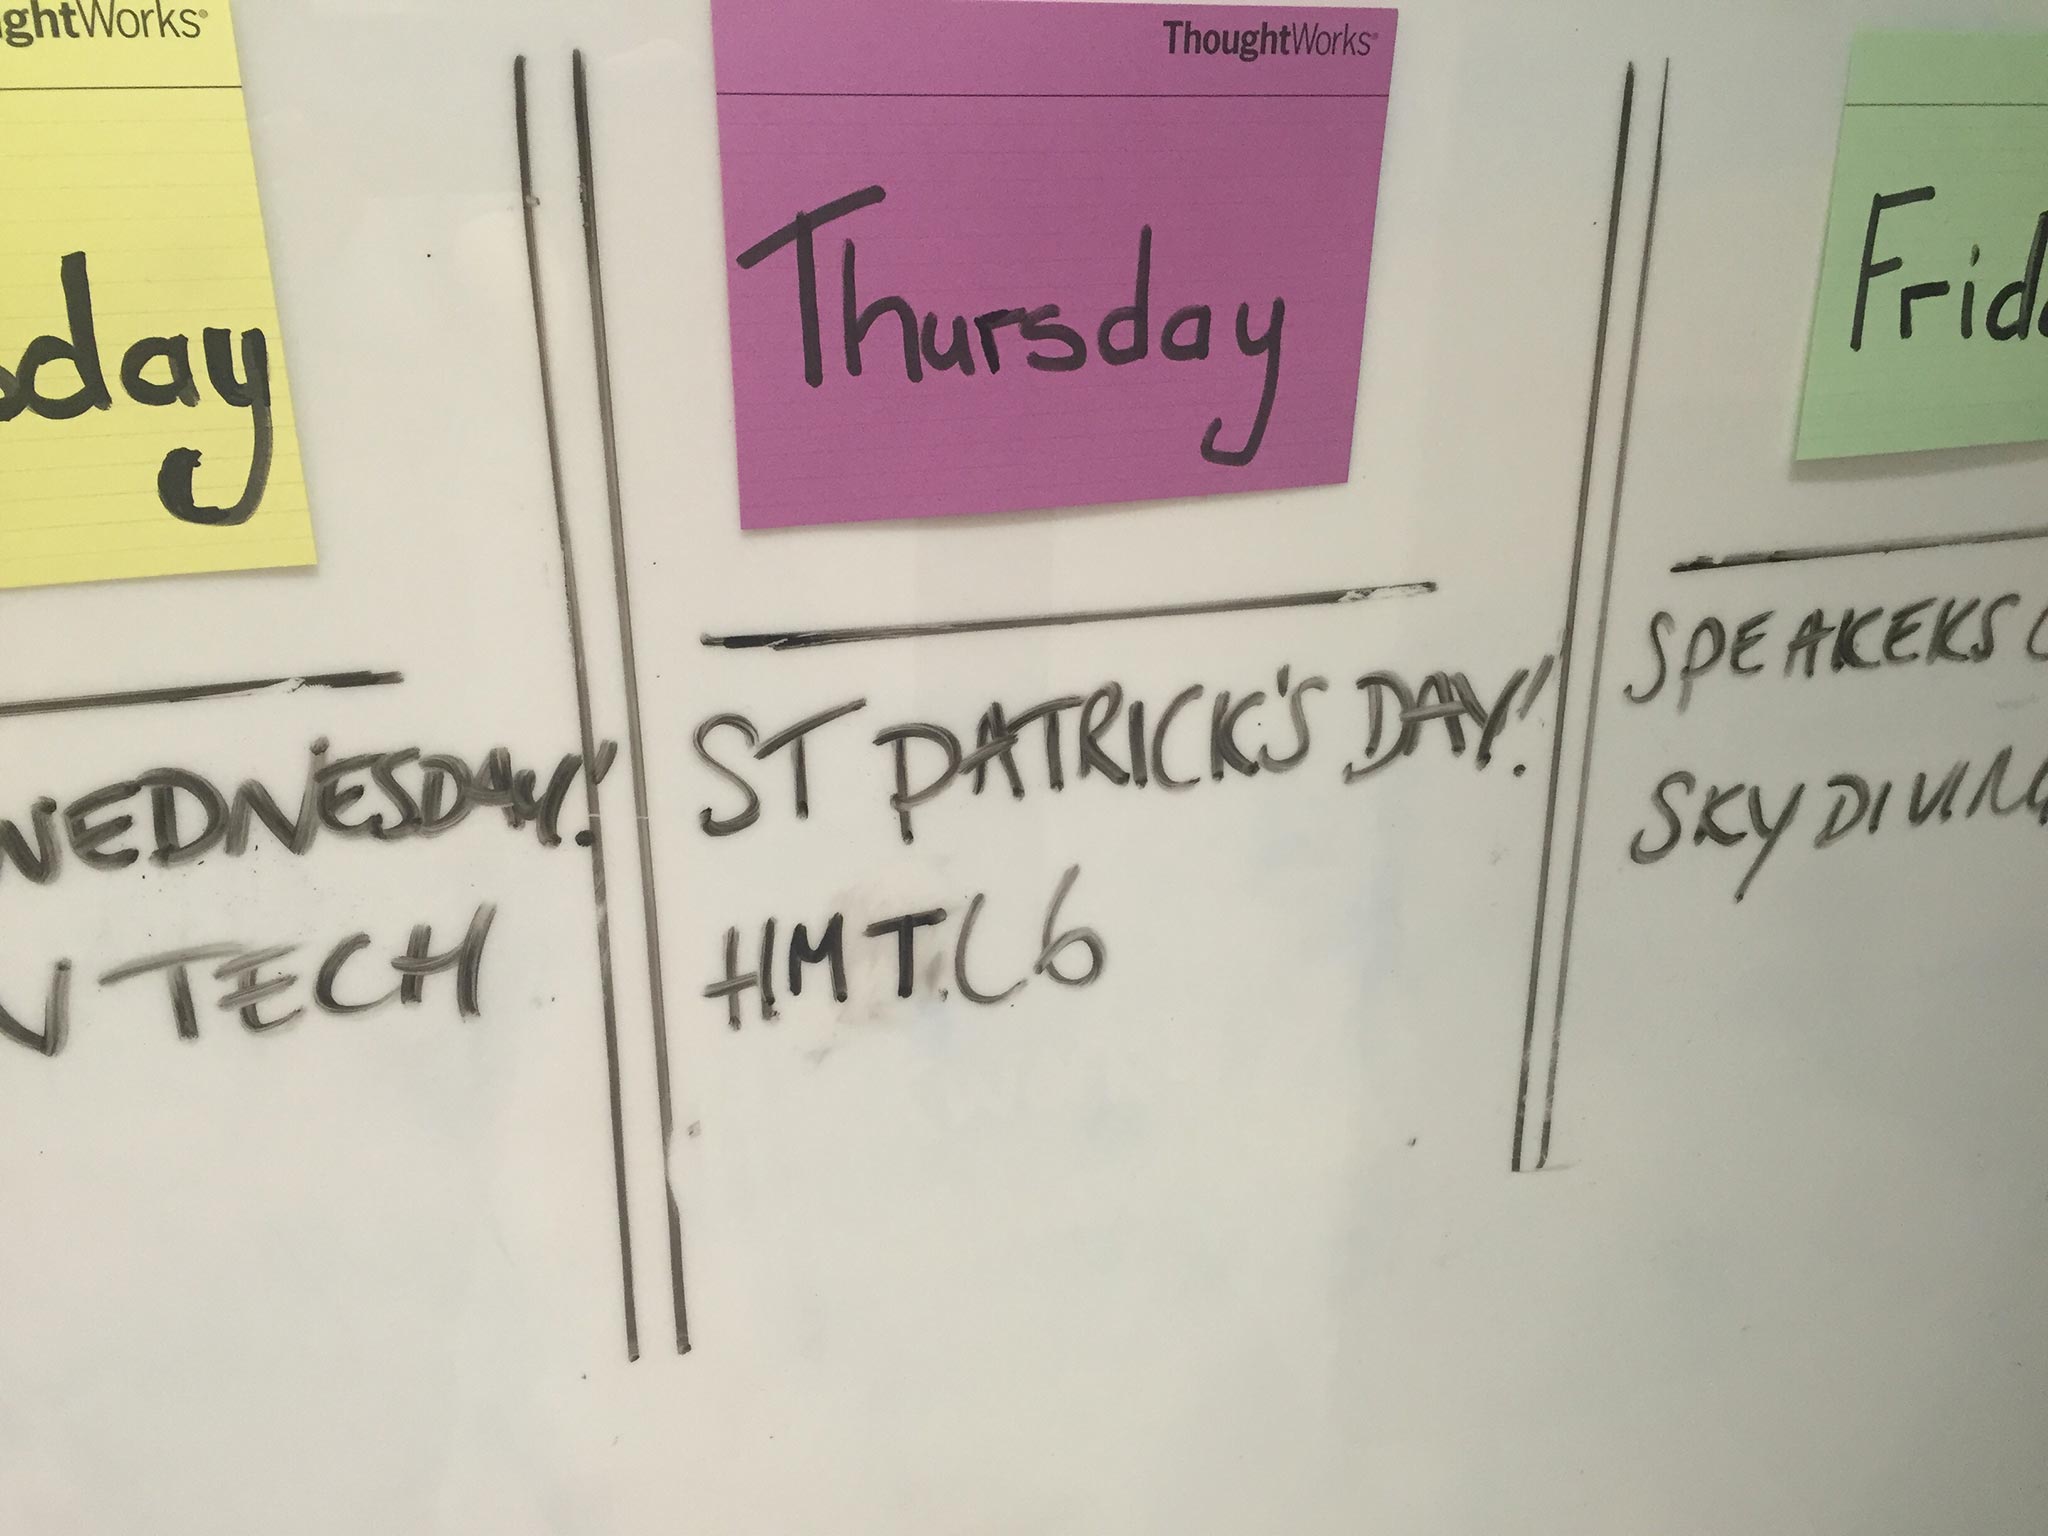 ghtWorks
sday
WEDNESDAY!
TECH
ThoughtWorks
Thursday
ST PATRICK'S DAY!
HMTL6
Frid
SPEAKERS
SKYDIVING